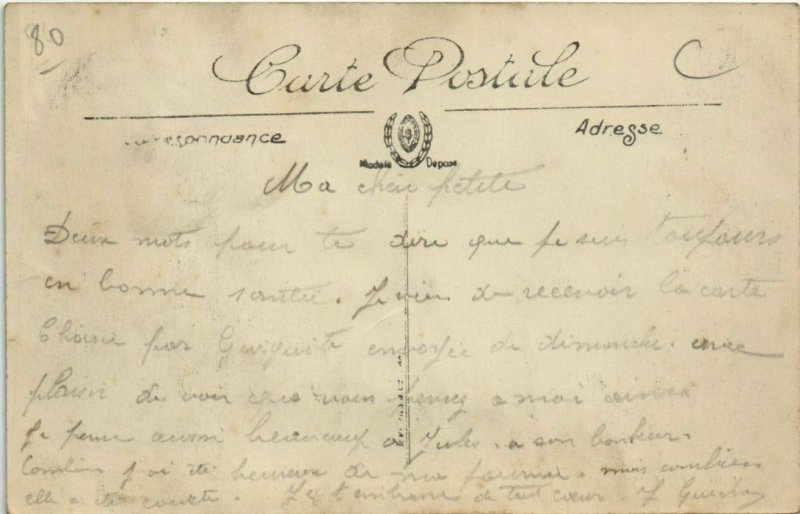 80
Carte Postale
Correspondance
Adresse
Modèle Déposé
Ma chère petite
Deux mots pour te dire que je suis toujours
en bonne santé. Je viens de recevoir la carte
Choisie par envoyée de dimanche. avec
plaisir de voir que vous pensez a moi
Je pense aussi beaucoup a Jules. a son bonheur.
Combien j'ai été heureux de ma journée. mais combien
elle a été courte. Je t'embrasse de tout cœur J